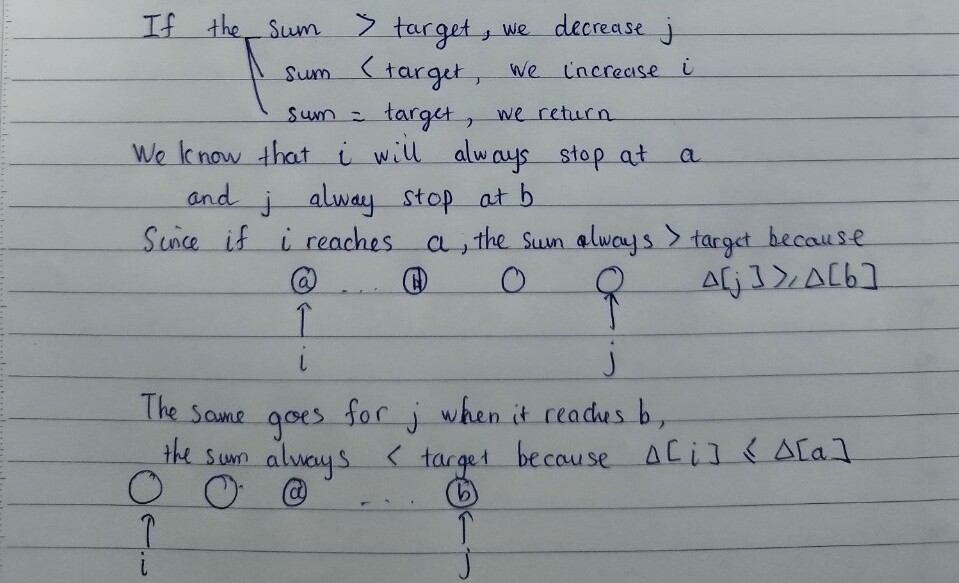 If the sum > target, we decrease j
sum < target, we increase i
sum = target, we return
We know that i will always stop at a
and j alway stop at b
Since if i reaches a, the sum always > target because
a ... Δ[j] ⩾ Δ[b]
i j
The same goes for j when it reaches b,
the sum always < target because Δ[i] ⩽ Δ[a]
a ... b
i j